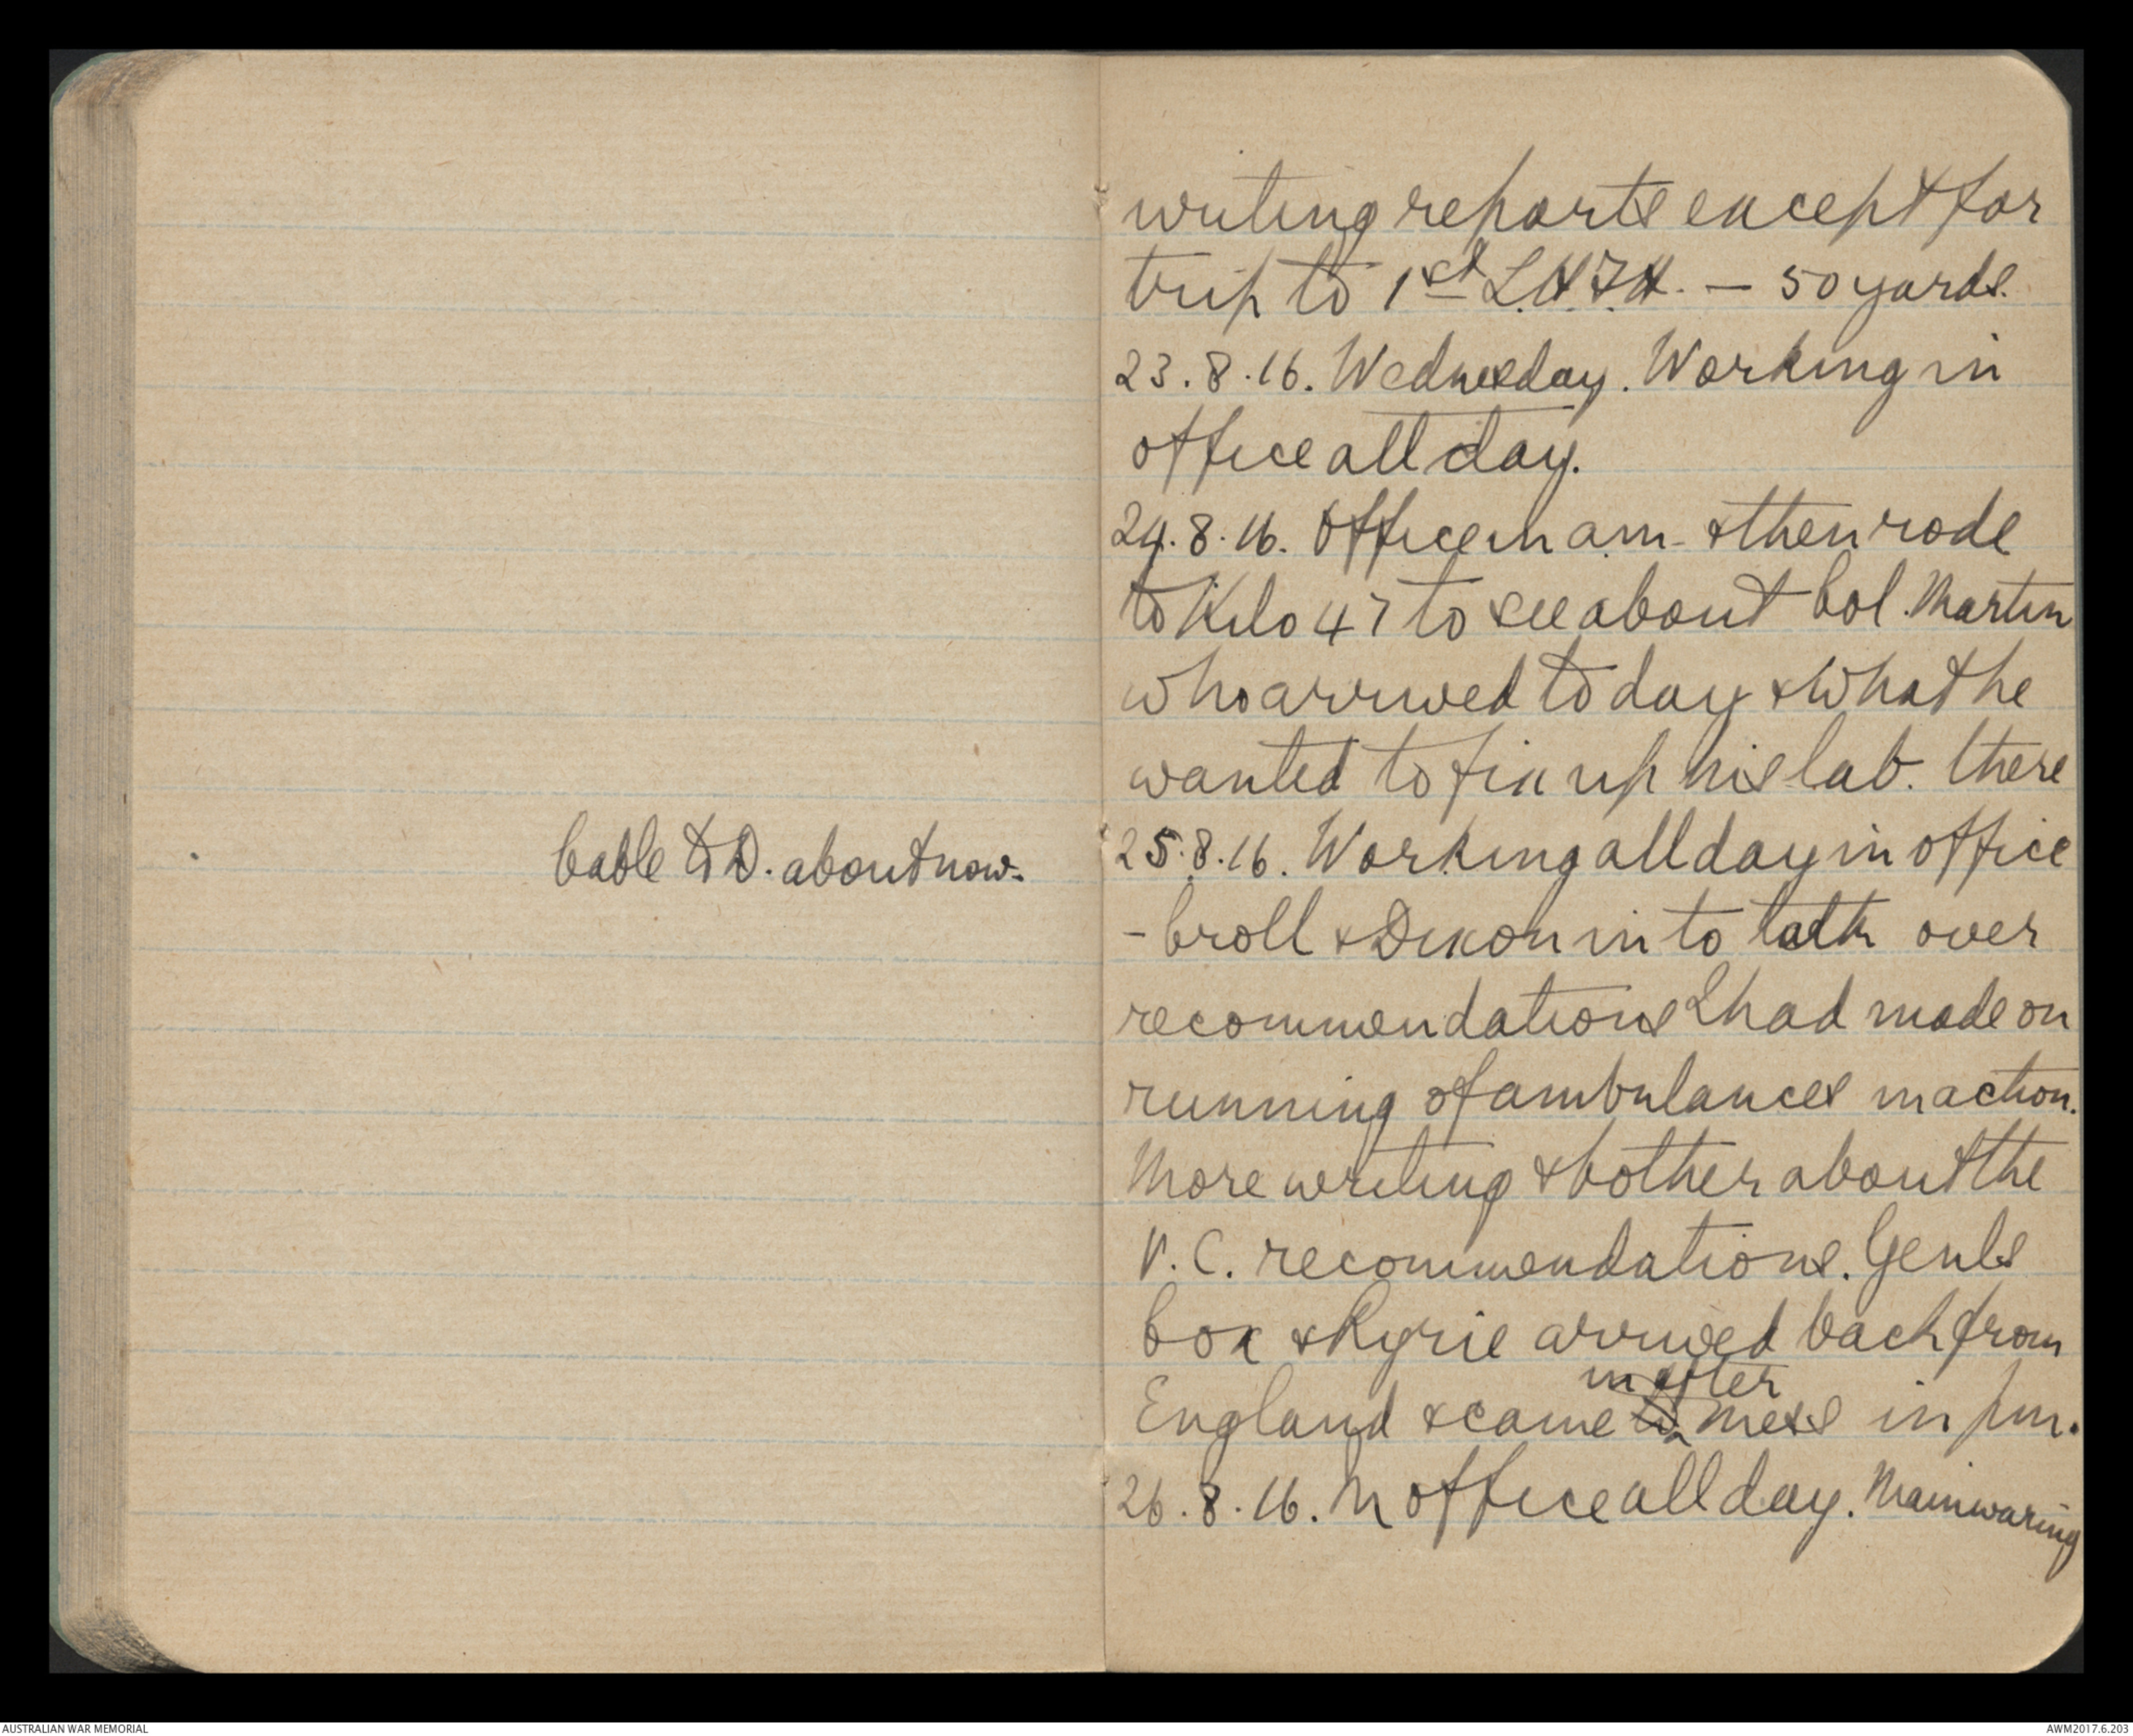 Cable to D. about now.
writing reports except for
trip to 1st L.H.F.A. — 50 yards.
23.8.16. Wednesday. Working in
office all day.
24.8.16. Office in am. & then rode
to Kilo 47 to see about Col. Martin
who arrived today & what he
wanted to fix up his lab. there
25.8.16. Working all day in office
- Croll & Dixon in to talk over
recommendations I had made on
running of ambulances in action.
More writing & bother about the
V.C. recommendations. Genls
Cox & Ryrie arrived back from
England & came to in after mess in pm.
26.8.16. In office all day. Mainwaring
AUSTRALIAN WAR MEMORIAL
AWM2017.6.203